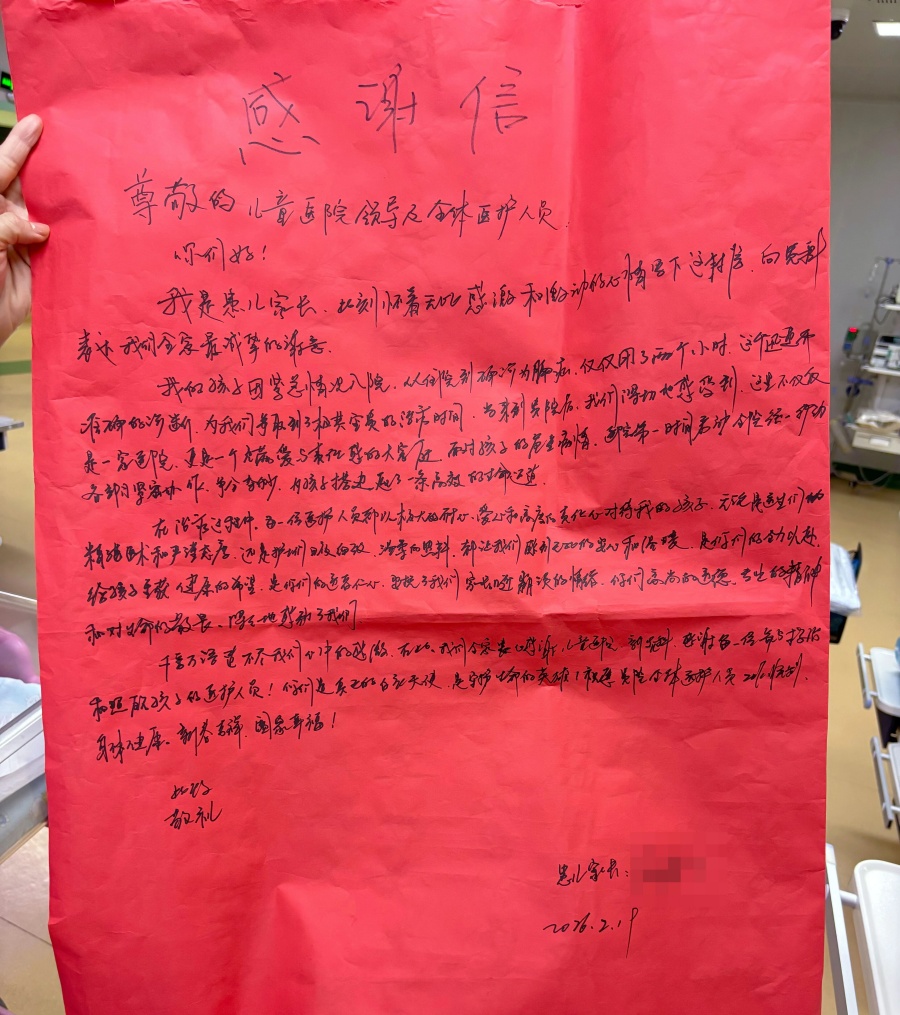 感谢信
尊敬的儿童医院领导及全体医护人员
你们好!
我是患儿家长,此刻怀着无比感激和激动的心情写下这封信,向贵科
表达我们全家最诚挚的谢意。
我的孩子因紧急情况入院,从住院到确诊为肿瘤,仅仅用了两个小时,这个迅速而
准确的诊断,为我们争取到了极其宝贵的治疗时间,来到贵院后,我们深切地感受到,这里不仅仅
是一家医院,更是一个充满爱与责任感的大家庭,面对孩子的危重病情,医院第一时间启动
各部门紧密协作,争分夺秒,为孩子搭建起了一条高效的生命通道
在治疗过程中,每一位医护人员都以极大的耐心、爱心和高度的责任心对待我的孩子,无论是医生们的
精湛医术和严谨态度,还是护士们的照料,都让我们感到无比的安心和温暖,是你们的全力以赴,
给孩子重获健康的希望,是你们的医者仁心,安抚了我们家长几近崩溃的情绪,你们高尚的医德、专业的精神
和对生命的敬畏,深深地感动了我们
千言万语道不尽我们心中的感激,在此,我们全家衷心感谢儿童医院,感谢每一位参与救治
和照顾孩子的医护人员!你们是真正的白衣天使,是守护生命的英雄!祝愿贵院全体医护人员2026
身体健康、新春吉祥、阖家幸福!
此致
敬礼
患儿家长:
2026.2.19